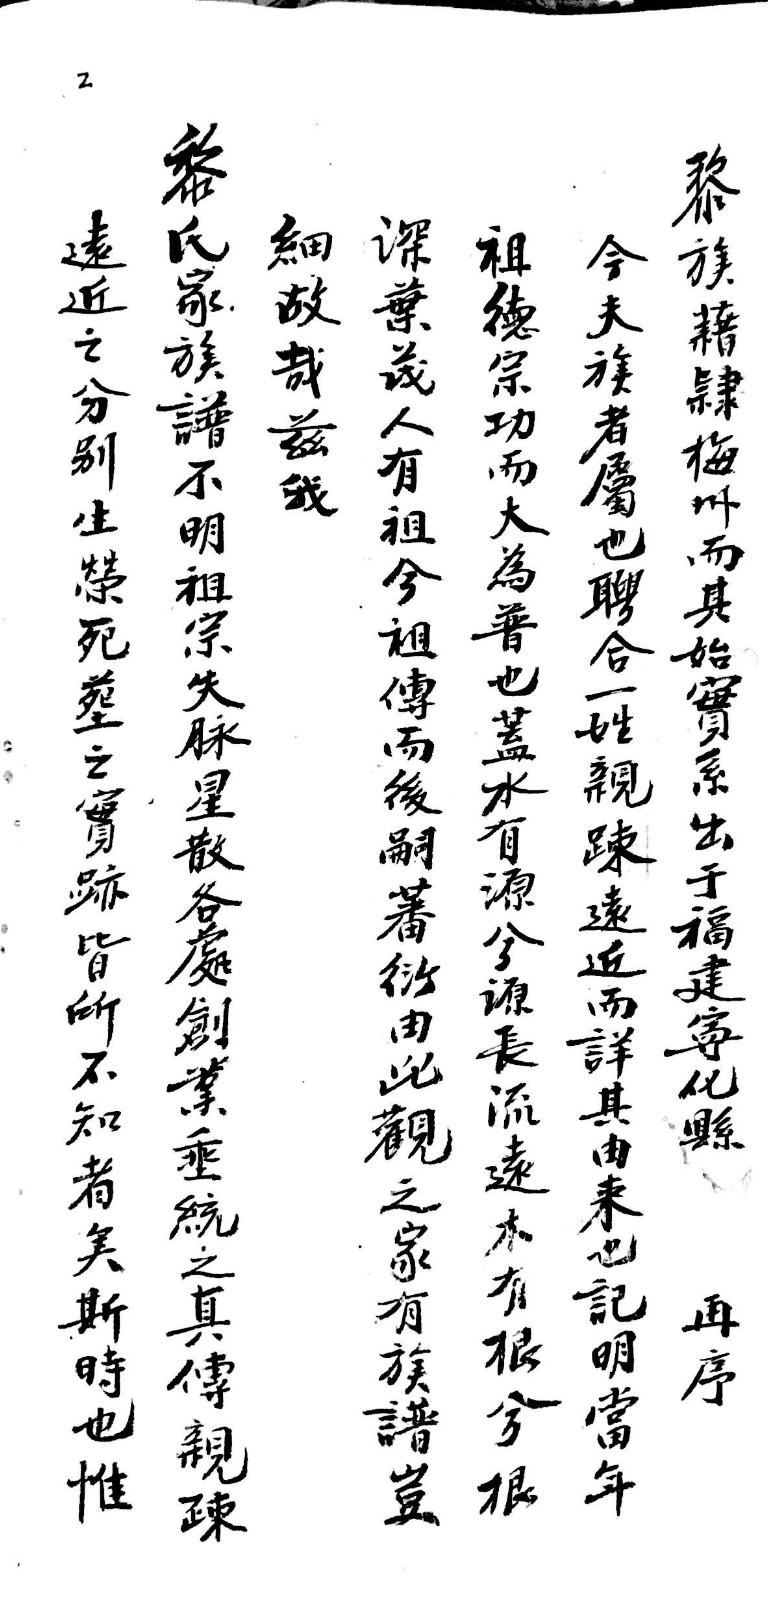 2
黎族藉隸梅州而其始實系出于福建寧化縣 再序
今夫族者屬也聯合一姓親踈遠近而詳其由来也記明當年
祖德宗功而大為普也蓋水有源兮源長流遠木有根兮根
深葉茂人有祖兮祖傳而後嗣蕃衍由此觀之家有族譜豈
細故哉茲我
黎氏家族譜不明祖宗失脉星散各處創業垂統之真傳親踈
遠近之分别生榮死塟之實跡皆所不知者矣斯時也惟